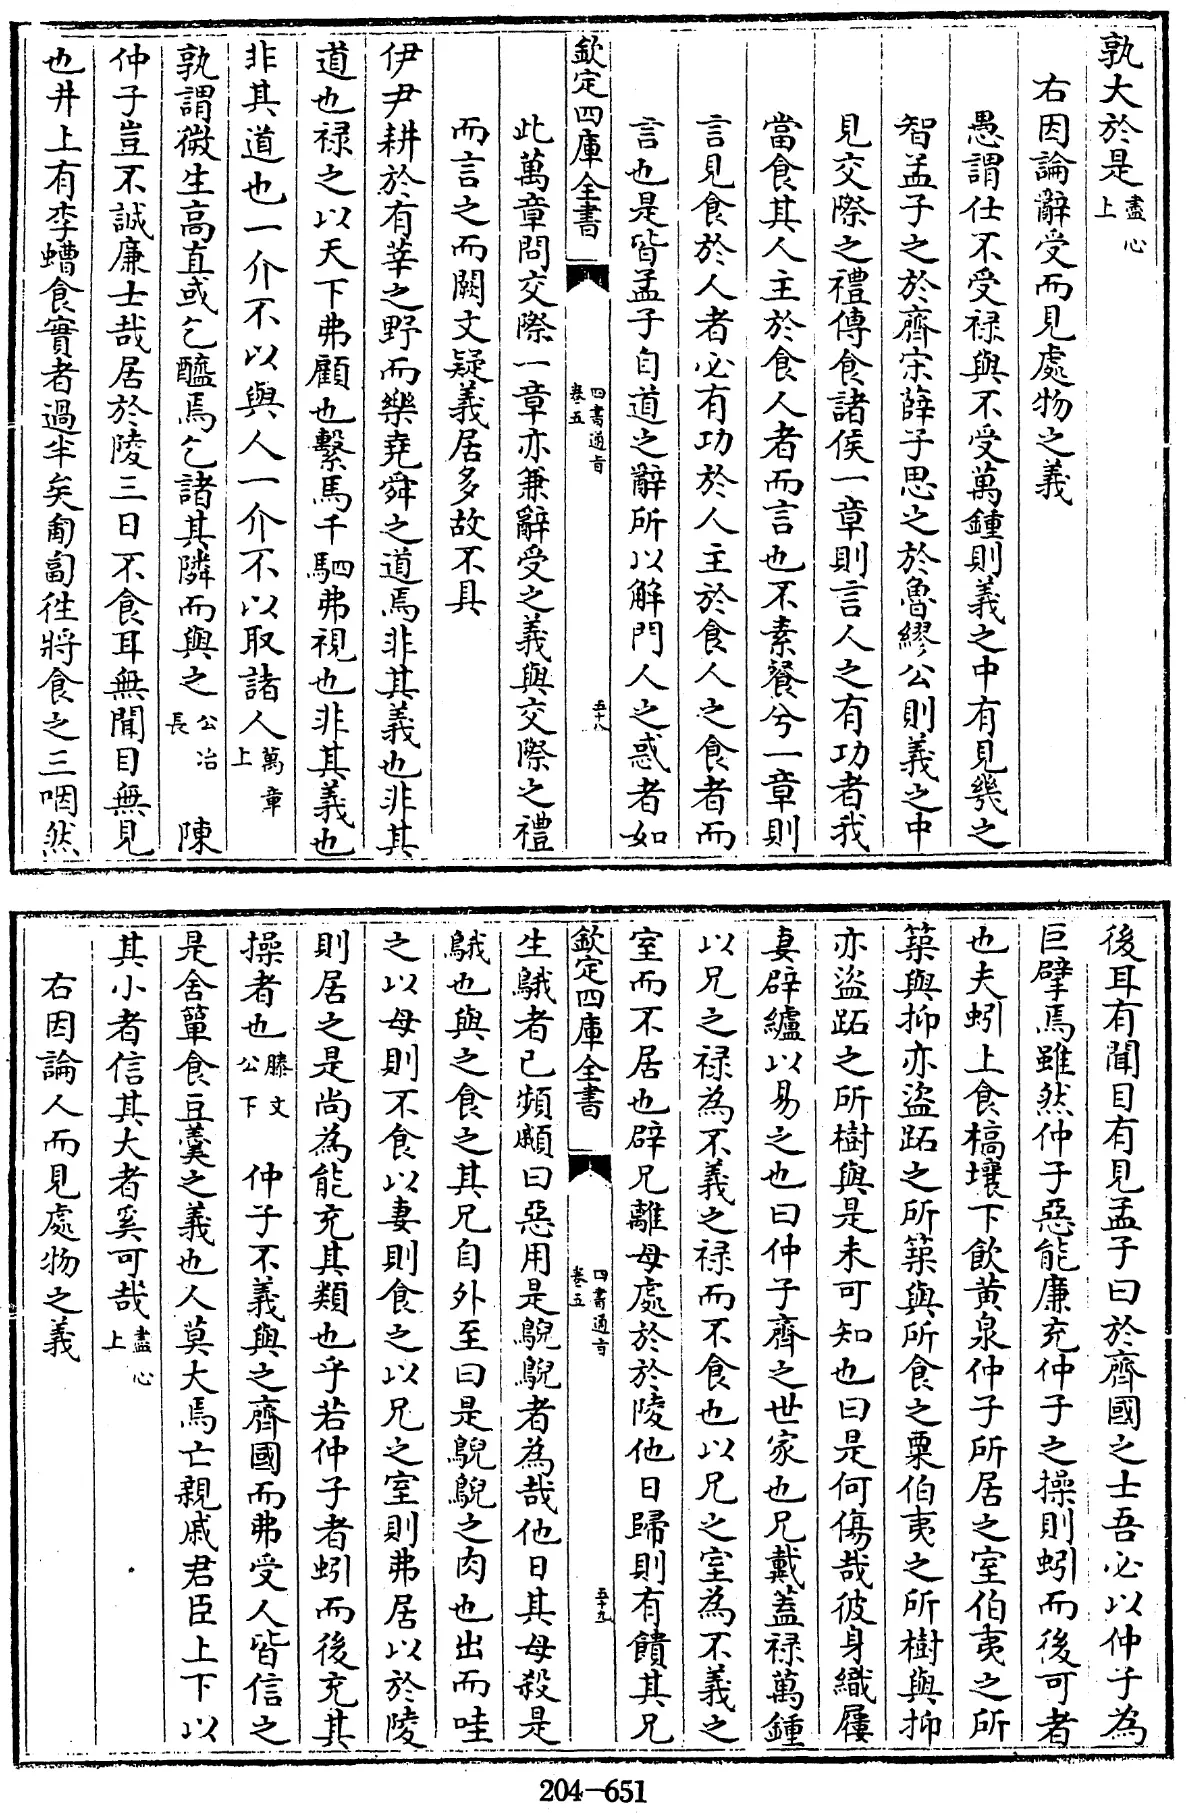 孰大於是盡心上
右因論辭受而見處物之義
愚謂仕不受禄與不受萬鍾則義之中有見㡬之
智孟子之於齊宋薛子思之於魯繆公則義之中
見交際之禮傳食諸侯一章則言人之有功者我
當食其人主於食人者而言也不素餐兮一章則
言見食於人者必有功於人主於食人之食者而
言也是皆孟子自道之辭所以解門人之惑者如
欽定四庫全書
四書通旨
卷五
五十八
此萬章問交際一章亦兼辭受之義與交際之禮
而言之而闕文疑義居多故不具
伊尹耕於有莘之野而樂堯舜之道焉非其義也非其
道也禄之以天下弗顧也繫馬千駟弗視也非其義也
非其道也一介不以與人一介不以取諸人萬章上
孰謂微生高直或乞醯焉乞諸其隣而與之公冶長 陳
仲子豈不誠廉士哉居於陵三日不食耳無聞目無見
也井上有李螬食實者過半矣匍匐徃將食之三咽然
後耳有聞目有見孟子曰於齊國之士吾必以仲子為
巨擘焉雖然仲子惡能廉充仲子之操則蚓而後可者
也夫蚓上食槁壤下飲黄泉仲子所居之室伯夷之所
築與抑亦盜跖之所築與所食之粟伯夷之所樹與抑
亦盜跖之所樹與是未可知也曰是何傷哉彼身織屨
妻辟纑以易之也曰仲子齊之世家也兄戴蓋禄萬鍾
以兄之禄為不義之禄而不食也以兄之室為不義之
室而不居也辟兄離母處於於陵他日歸則有饋其兄
欽定四庫全書
四書通旨
卷五
五十九
生鵝者已頻顣曰惡用是鶃鶃者為哉他日其母殺是
鵝也與之食之其兄自外至曰是鶃鶃之肉也出而哇
之以母則不食以妻則食之以兄之室則弗居以於陵
則居之是尚為能充其類也乎若仲子者蚓而後充其
操者也滕文公下 仲子不義與之齊國而弗受人皆信之
是舍簞食豆羮之義也人莫大焉亡親戚君臣上下以
其小者信其大者奚可哉盡心上
右因論人而見處物之義
204-651